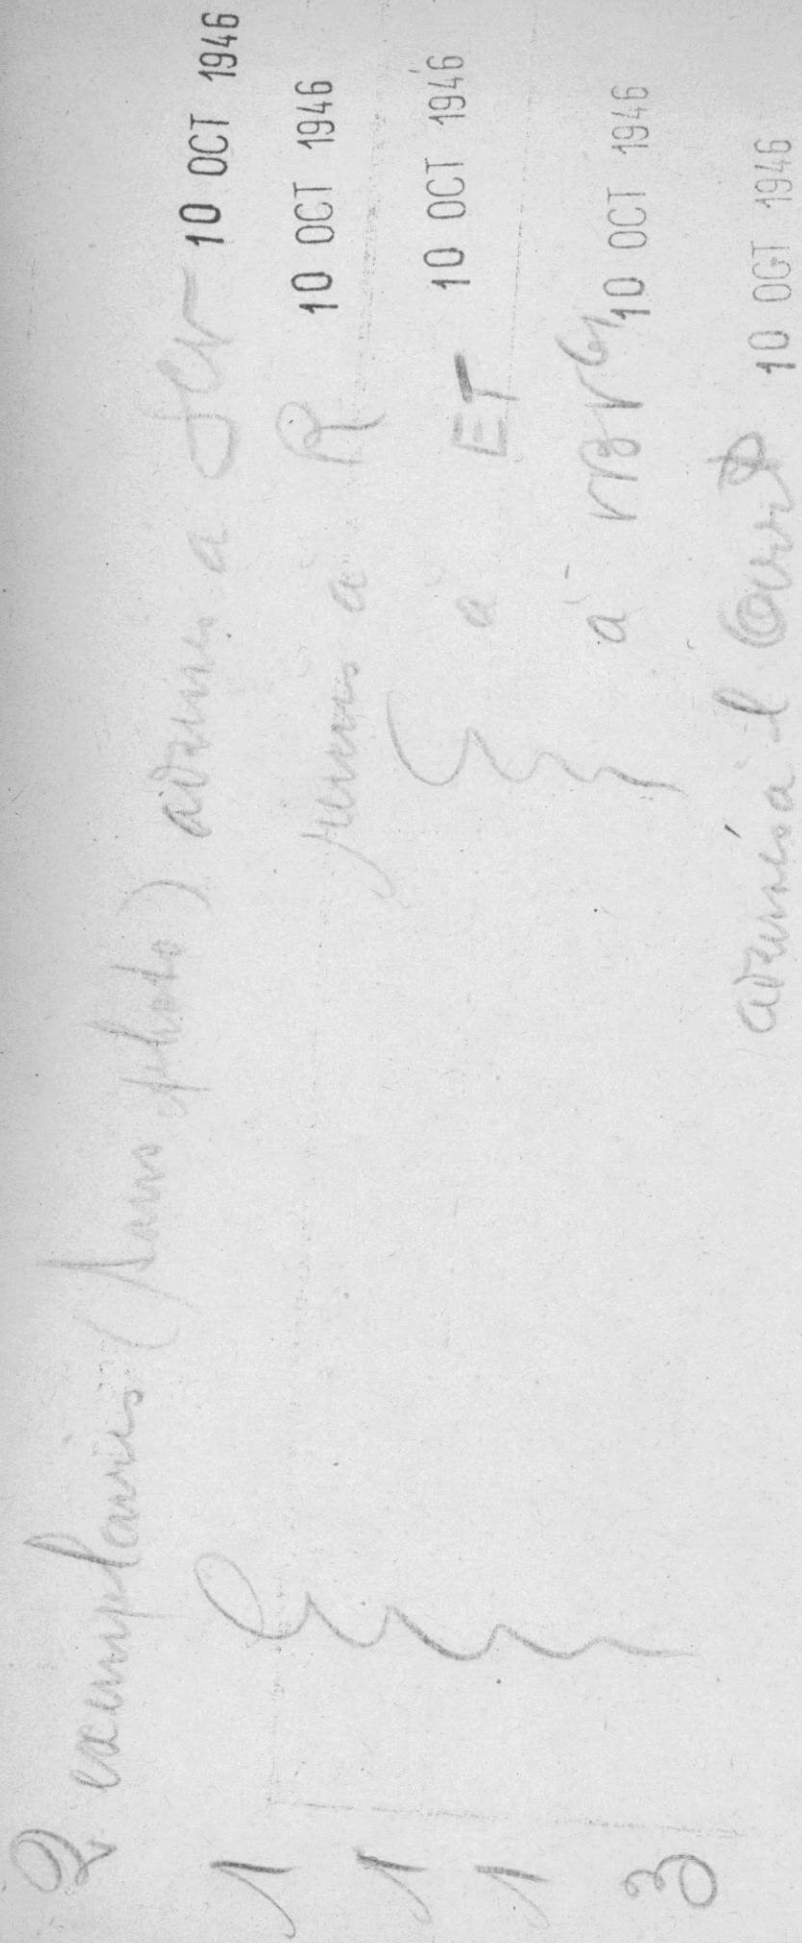 2 exemplaires (sans photo) adressés à 10 OCT 1946
1 remis à R 10 OCT 1946
1 à ET 10 OCT 1946
1 à 10 OCT 1946
3 adressés à l 10 OCT 1946